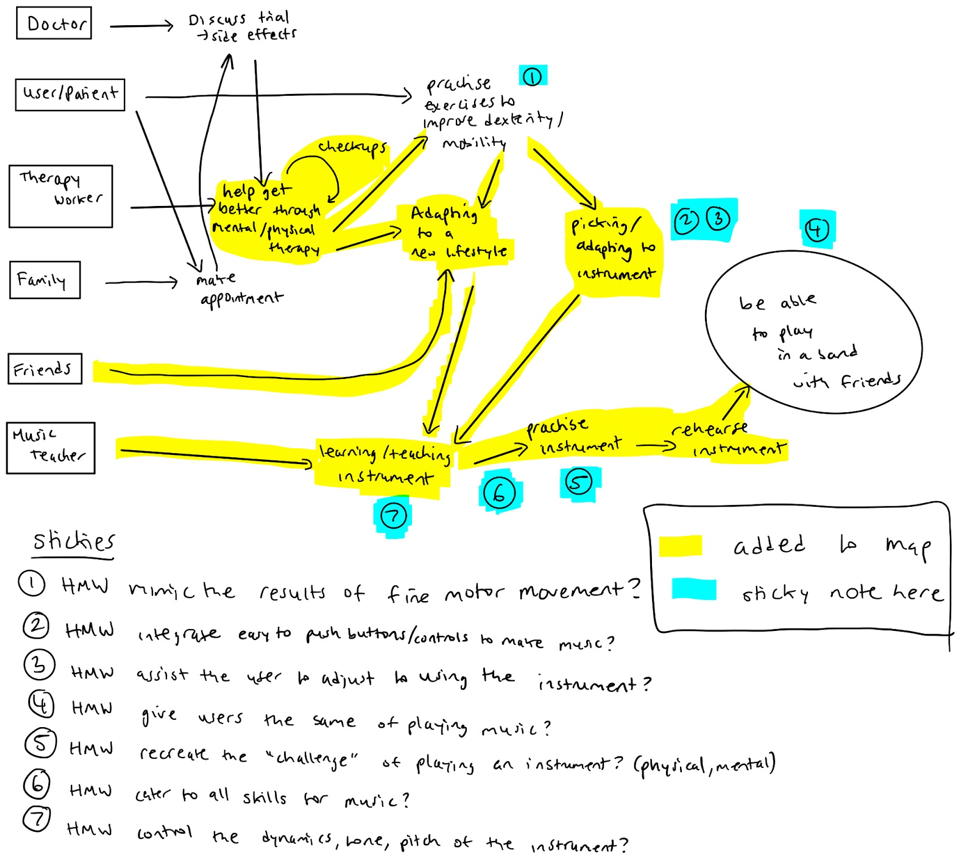 Doctor
Discuss trial
→side effects
User/Patient
practise
exercises to
improve dexterity/
mobility
①
checkups
Therapy
Worker
help get
better through
mental/physical
therapy
Adapting
to a
new lifestyle
picking/
adapting to
instrument
② ③
④
Family
make
appointment
be able
to play
in a band
with friends
Friends
Music
Teacher
learning/teaching
instrument
practise
instrument
rehearse
instrument
⑥
⑤
⑦
added to map
sticky note here
stickies
① HMW mimic the results of fine motor movement?
② HMW integrate easy to push buttons/controls to make music?
③ HMW assist the user to adjust to using the instrument?
④ HMW give users the same of playing music?
⑤ HMW recreate the "challenge" of playing an instrument? (physical, mental)
⑥ HMW cater to all skills for music?
⑦ HMW control the dynamics, tone, pitch of the instrument?